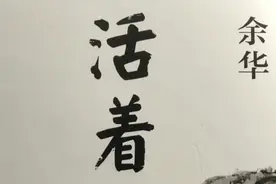 活着
余华